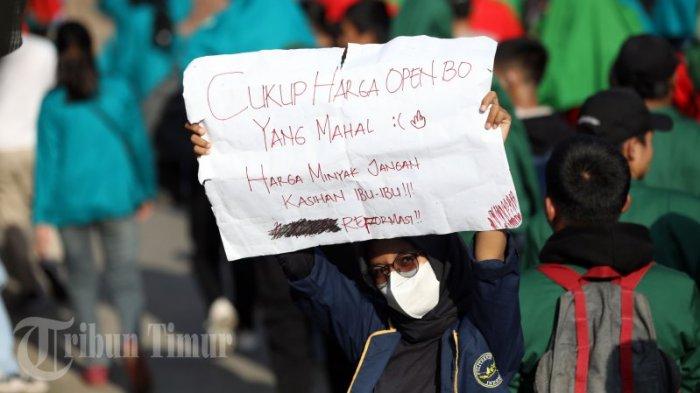 CUKUP HARGA OPEN BO
YANG MAHAL :(
HARGA MINYAK JANGAN
KASIHAN IBU-IBU!!
REFORMASI!!
Tribun Timur